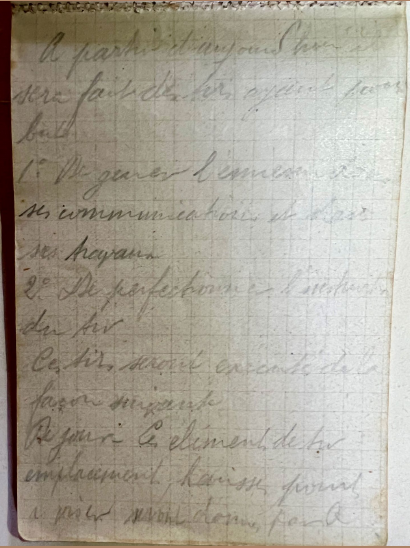 A partir d'aujourd'hui il
sera fait des tirs ayant pour
but
1° De gener l'ennemi dans
ses communications et dans
ses travaux
2° De perfectionner l'instruction
du tir
Ces tirs seront executés de la
façon suivante
De jour - Les élément de tir
emplacement, hausse, point
a viser seront donnés par